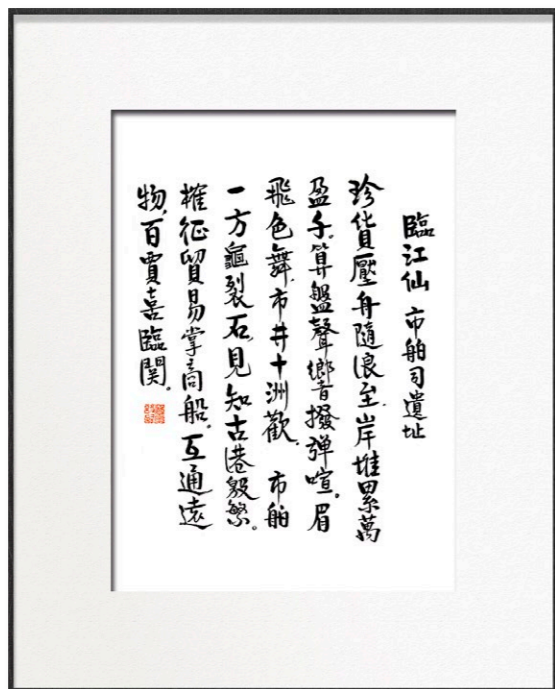 臨江仙 市舶司遺址
珍貨壓舟隨浪至.岸堆累萬
盈千.算盤聲響撥彈喧。眉
飛色舞.市井十洲歡. 市舶
一方龜裂石.見知古港殷繁。
榷征貿易掌商船.互通遠
物.百賈喜臨関.